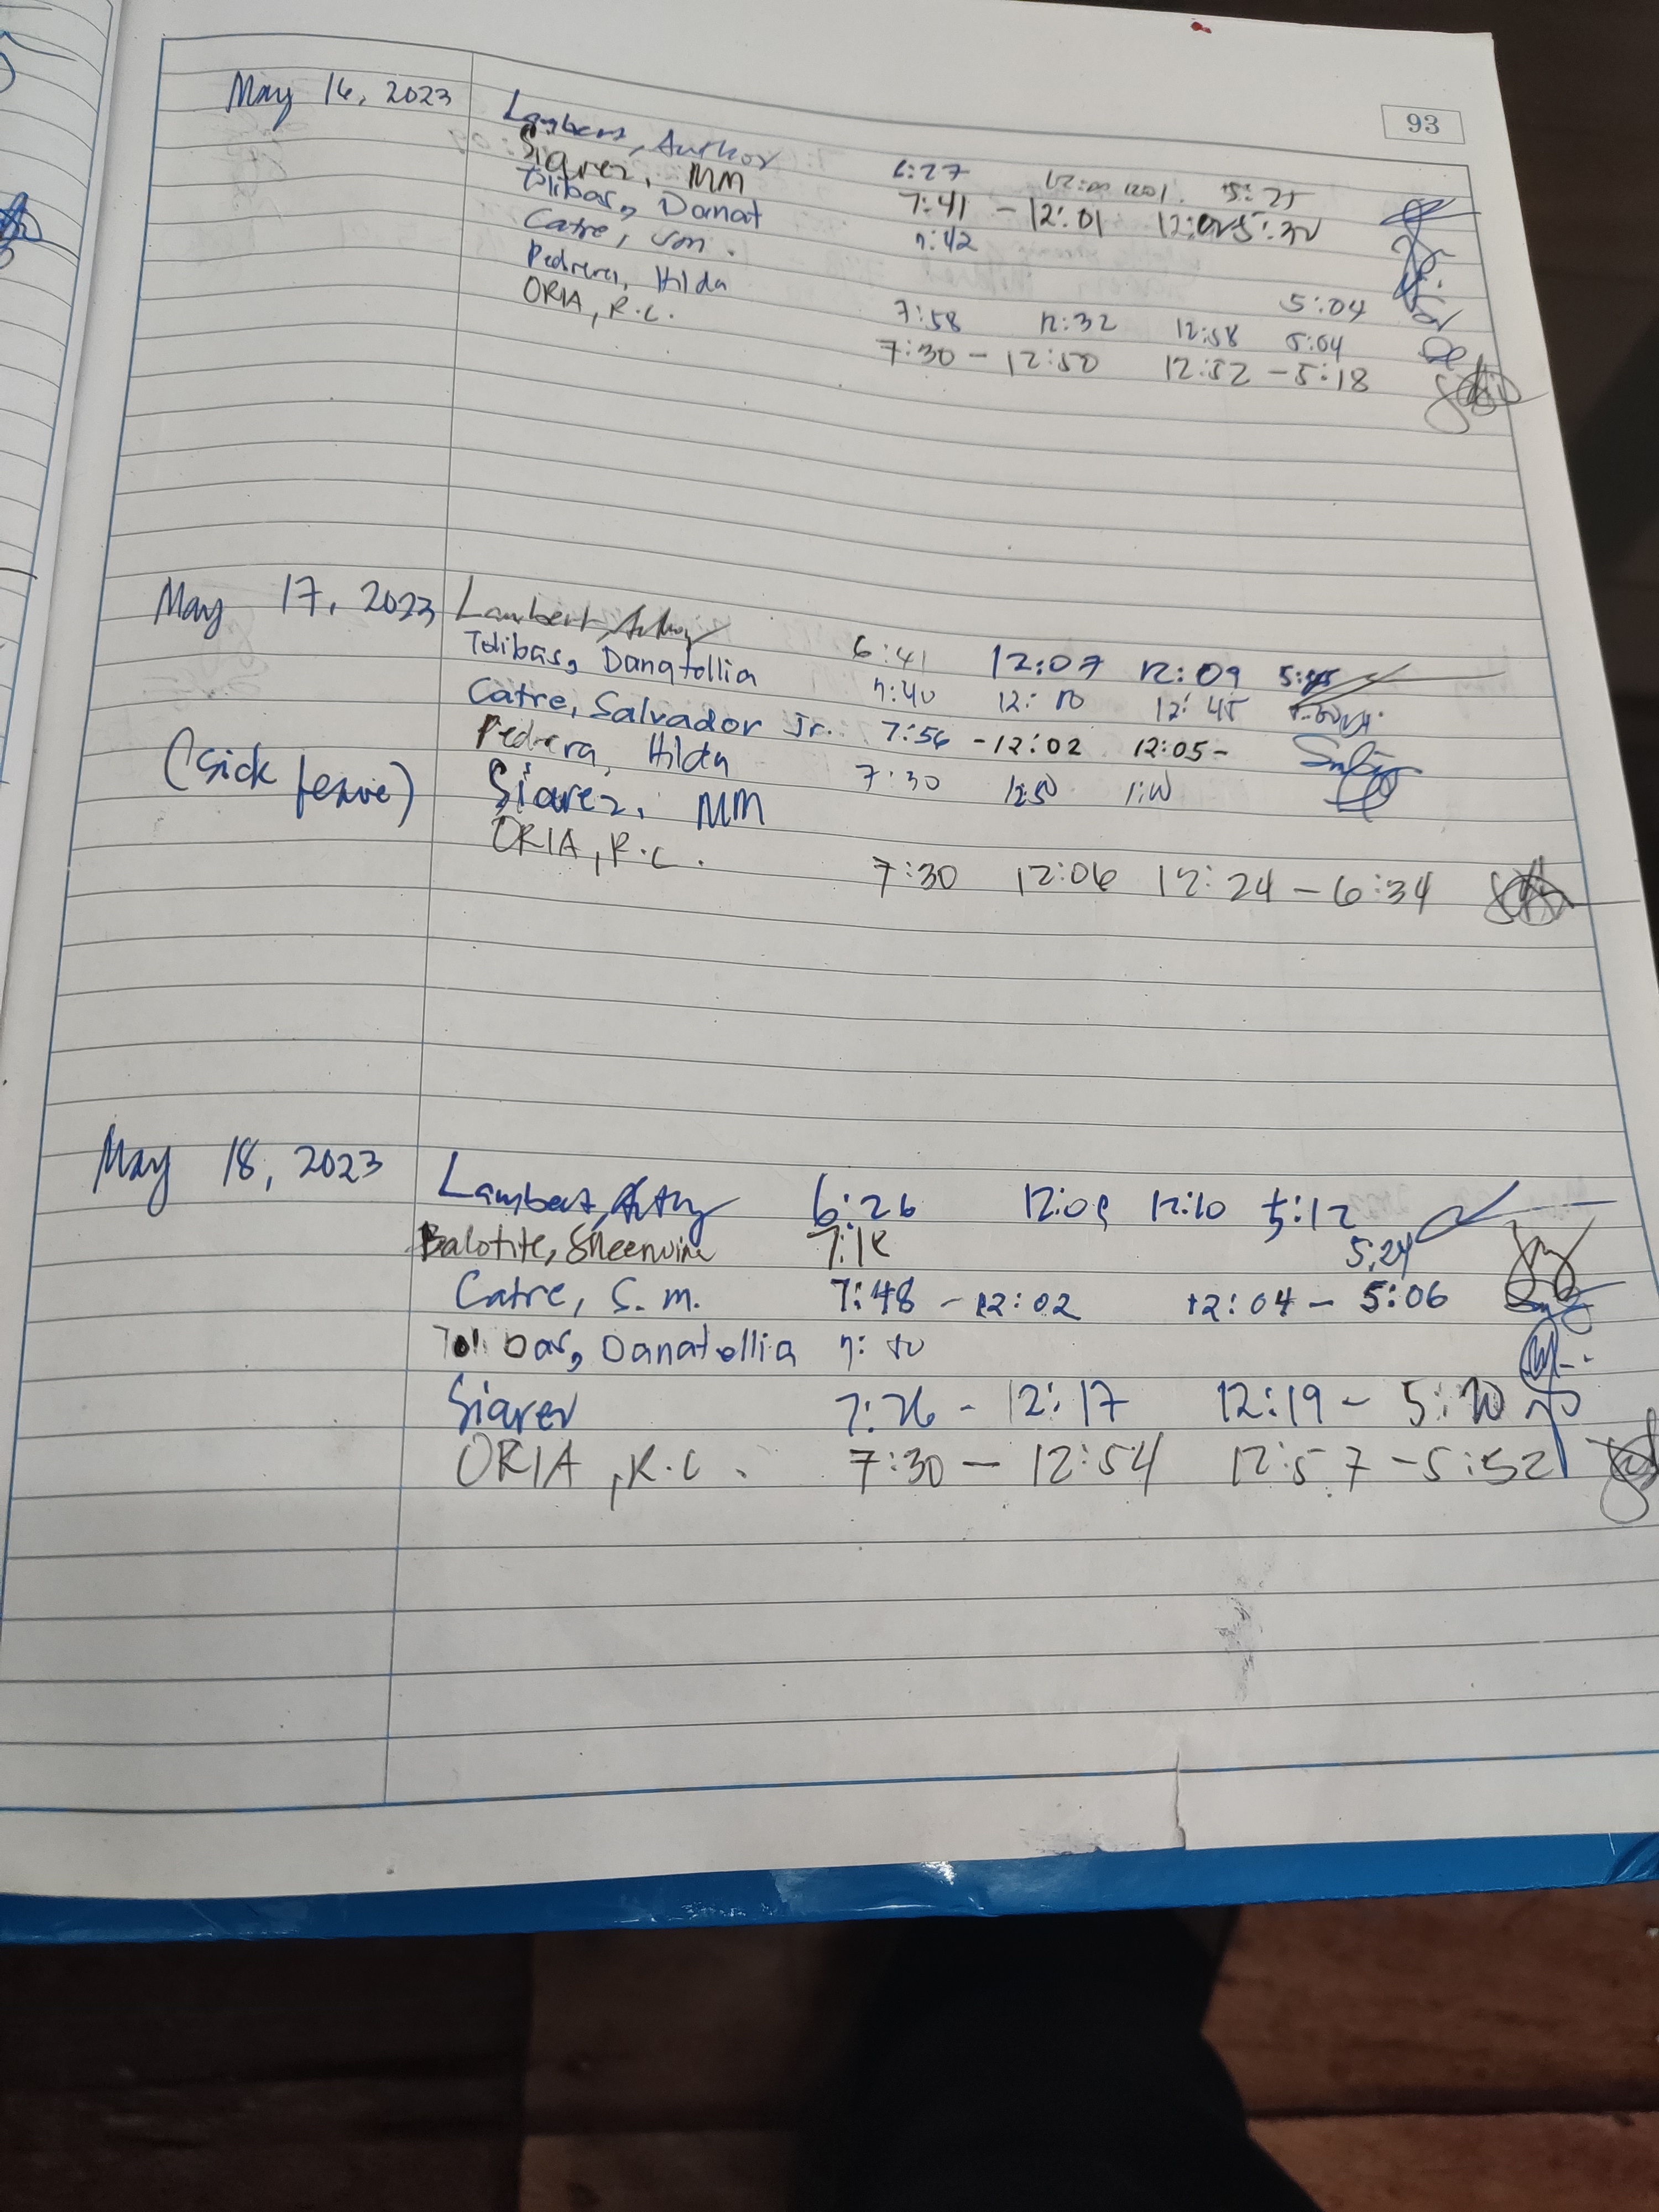 93
May 16, 2023
Lambert, Author 6:27 5:25
Siarez, MM 7:41 - 12:01 5:30
Tolibas, Danat 7:42
Catre, sm. 5:04
Pedrera, Hilda 7:58 12:32 12:58 5:04
ORIA, R.C. 7:30 - 12:50 12:52 - 5:18
May 17, 2023 Lambert, 6:41 12:07 12:09
Tolibas, Danatollia 7:40 12:10 12:45
Catre, Salvador Jr. 7:56 - 12:02 12:05 -
Pedrera, Hilda 7:30 12:50
(Sick Leave) Siarez, MM
ORIA, R.C. 7:30 12:06 12:24 - 6:34
May 18, 2023 Lambert, 6:26 12:09 12:10 5:12
Balotite, Sheenvine 5:24
Catre, S.m. 7:48 - 12:02 12:04 - 5:06
Tolibas, Danatollia 7:50
Siarez 7:26 - 12:17 12:19 - 5:20
ORIA, R.C. 7:30 - 12:54 12:57 - 5:52